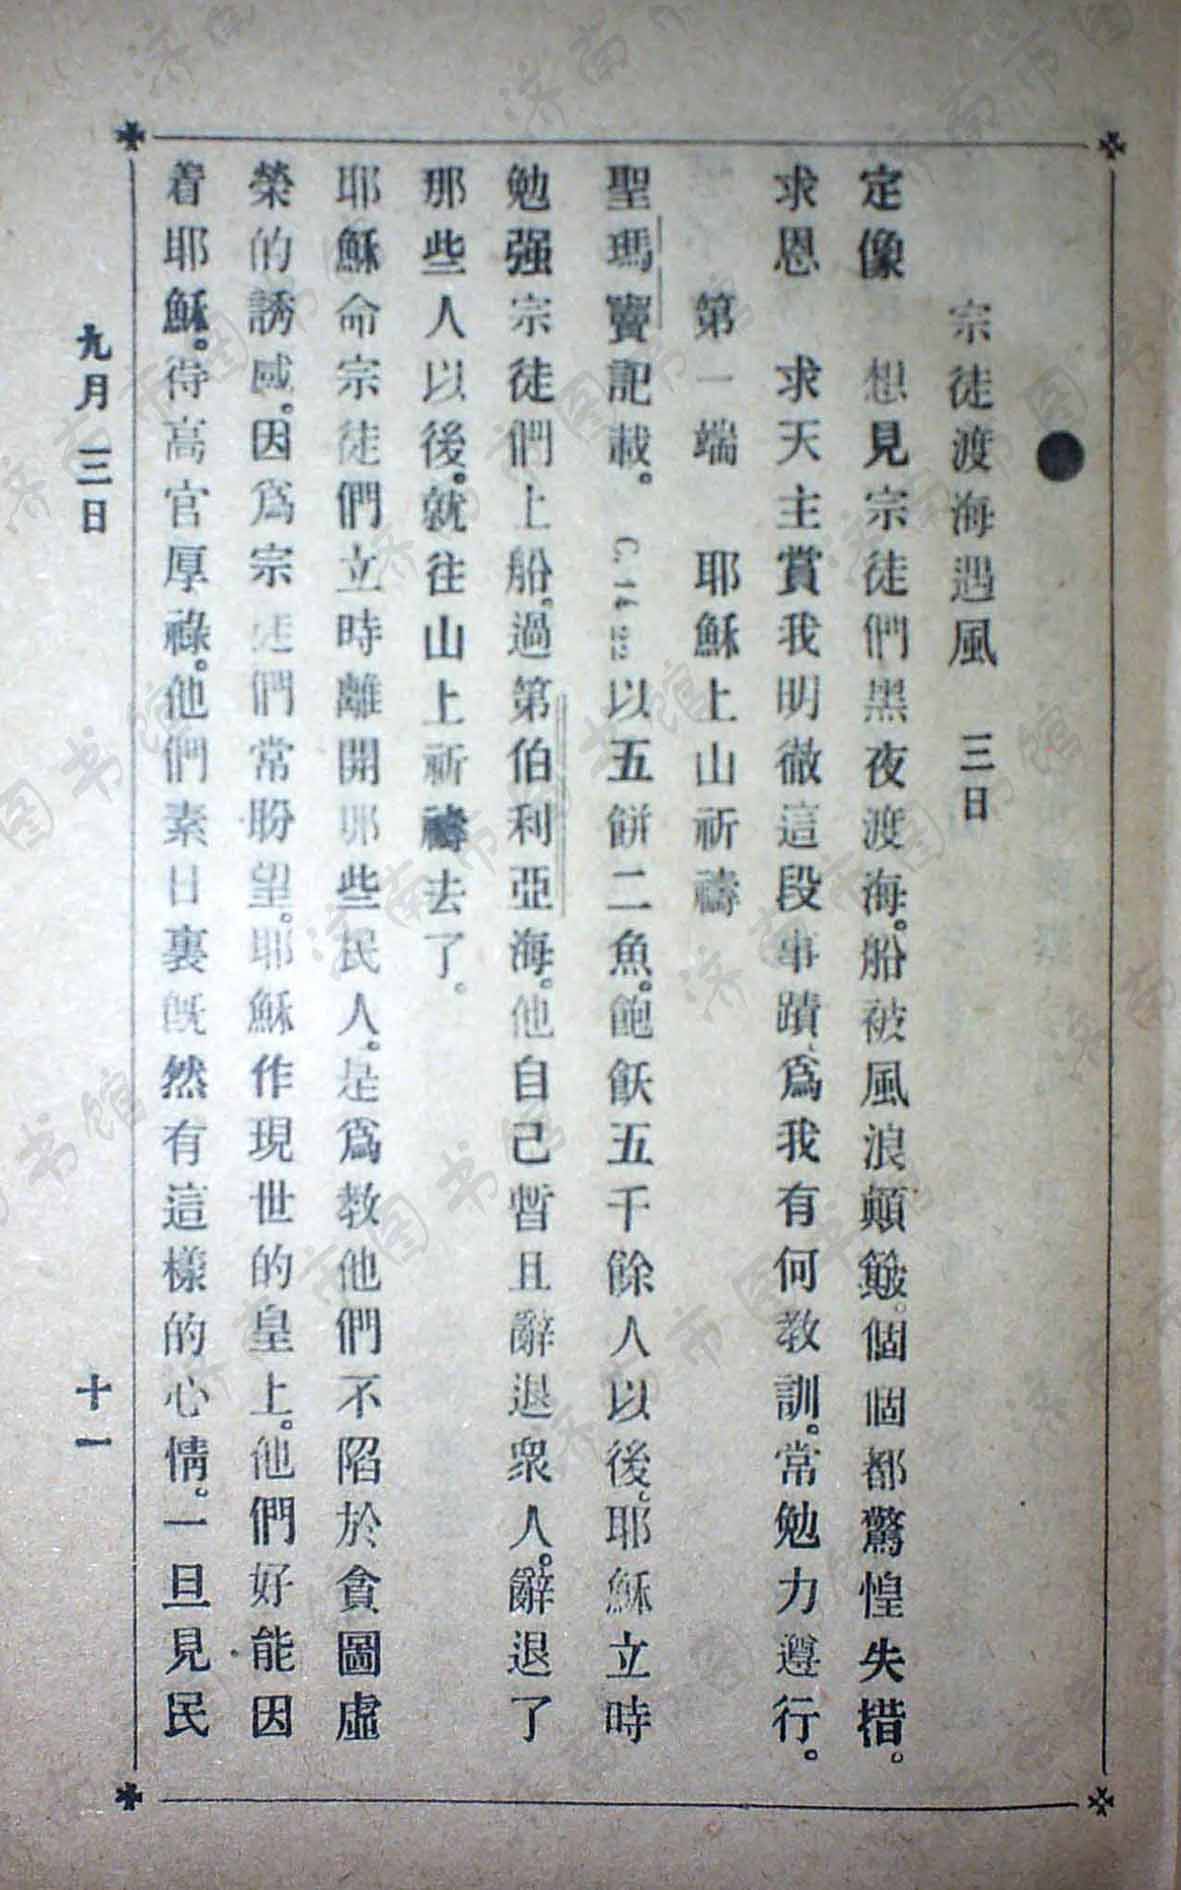 宗徒渡海遇風　三日
定像　想見宗徒們黑夜渡海。船被風浪顛簸。個個都驚惶失措。
求恩　求天主賞我明徹這段事蹟、爲我有何教訓。常勉力遵行。
第一端　耶穌上山祈禱
聖瑪竇記載。C. 14 22 以五餅二魚。飽飫五千餘人以後、耶穌立時
勉强宗徒們上船。過第伯利亞海。他自己暫且辭退衆人。辭退了
那些人以後。就往山上祈禱去了。
耶穌命宗徒們立時離開那些民人。是爲教他們不陷於貪圖虛
榮的誘感。因爲宗徒們常盼望。耶穌作現世的皇上。他們好能因
着耶穌。待高官厚祿。他們素日裏旣然有這樣的心情。一旦見民
九月　三日　十一